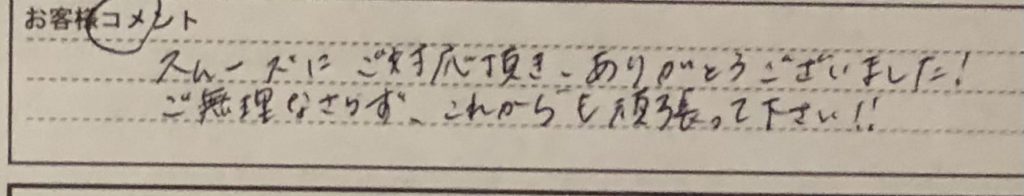 お客様コメント
スムーズにご対応頂き、ありがとうございました!
ご無理なさらず、これからも頑張って下さい!!